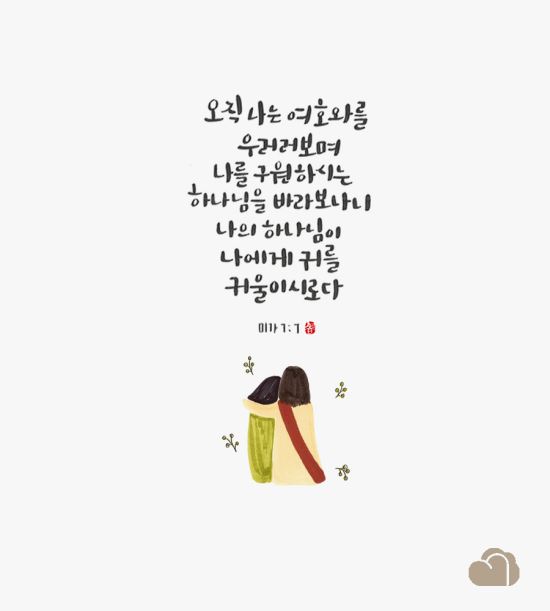 오직 나는 여호와를
우러러보며
나를 구원하시는
하나님을 바라보나니
나의 하나님이
나에게 귀를
귀울이시로다
미가 7:7